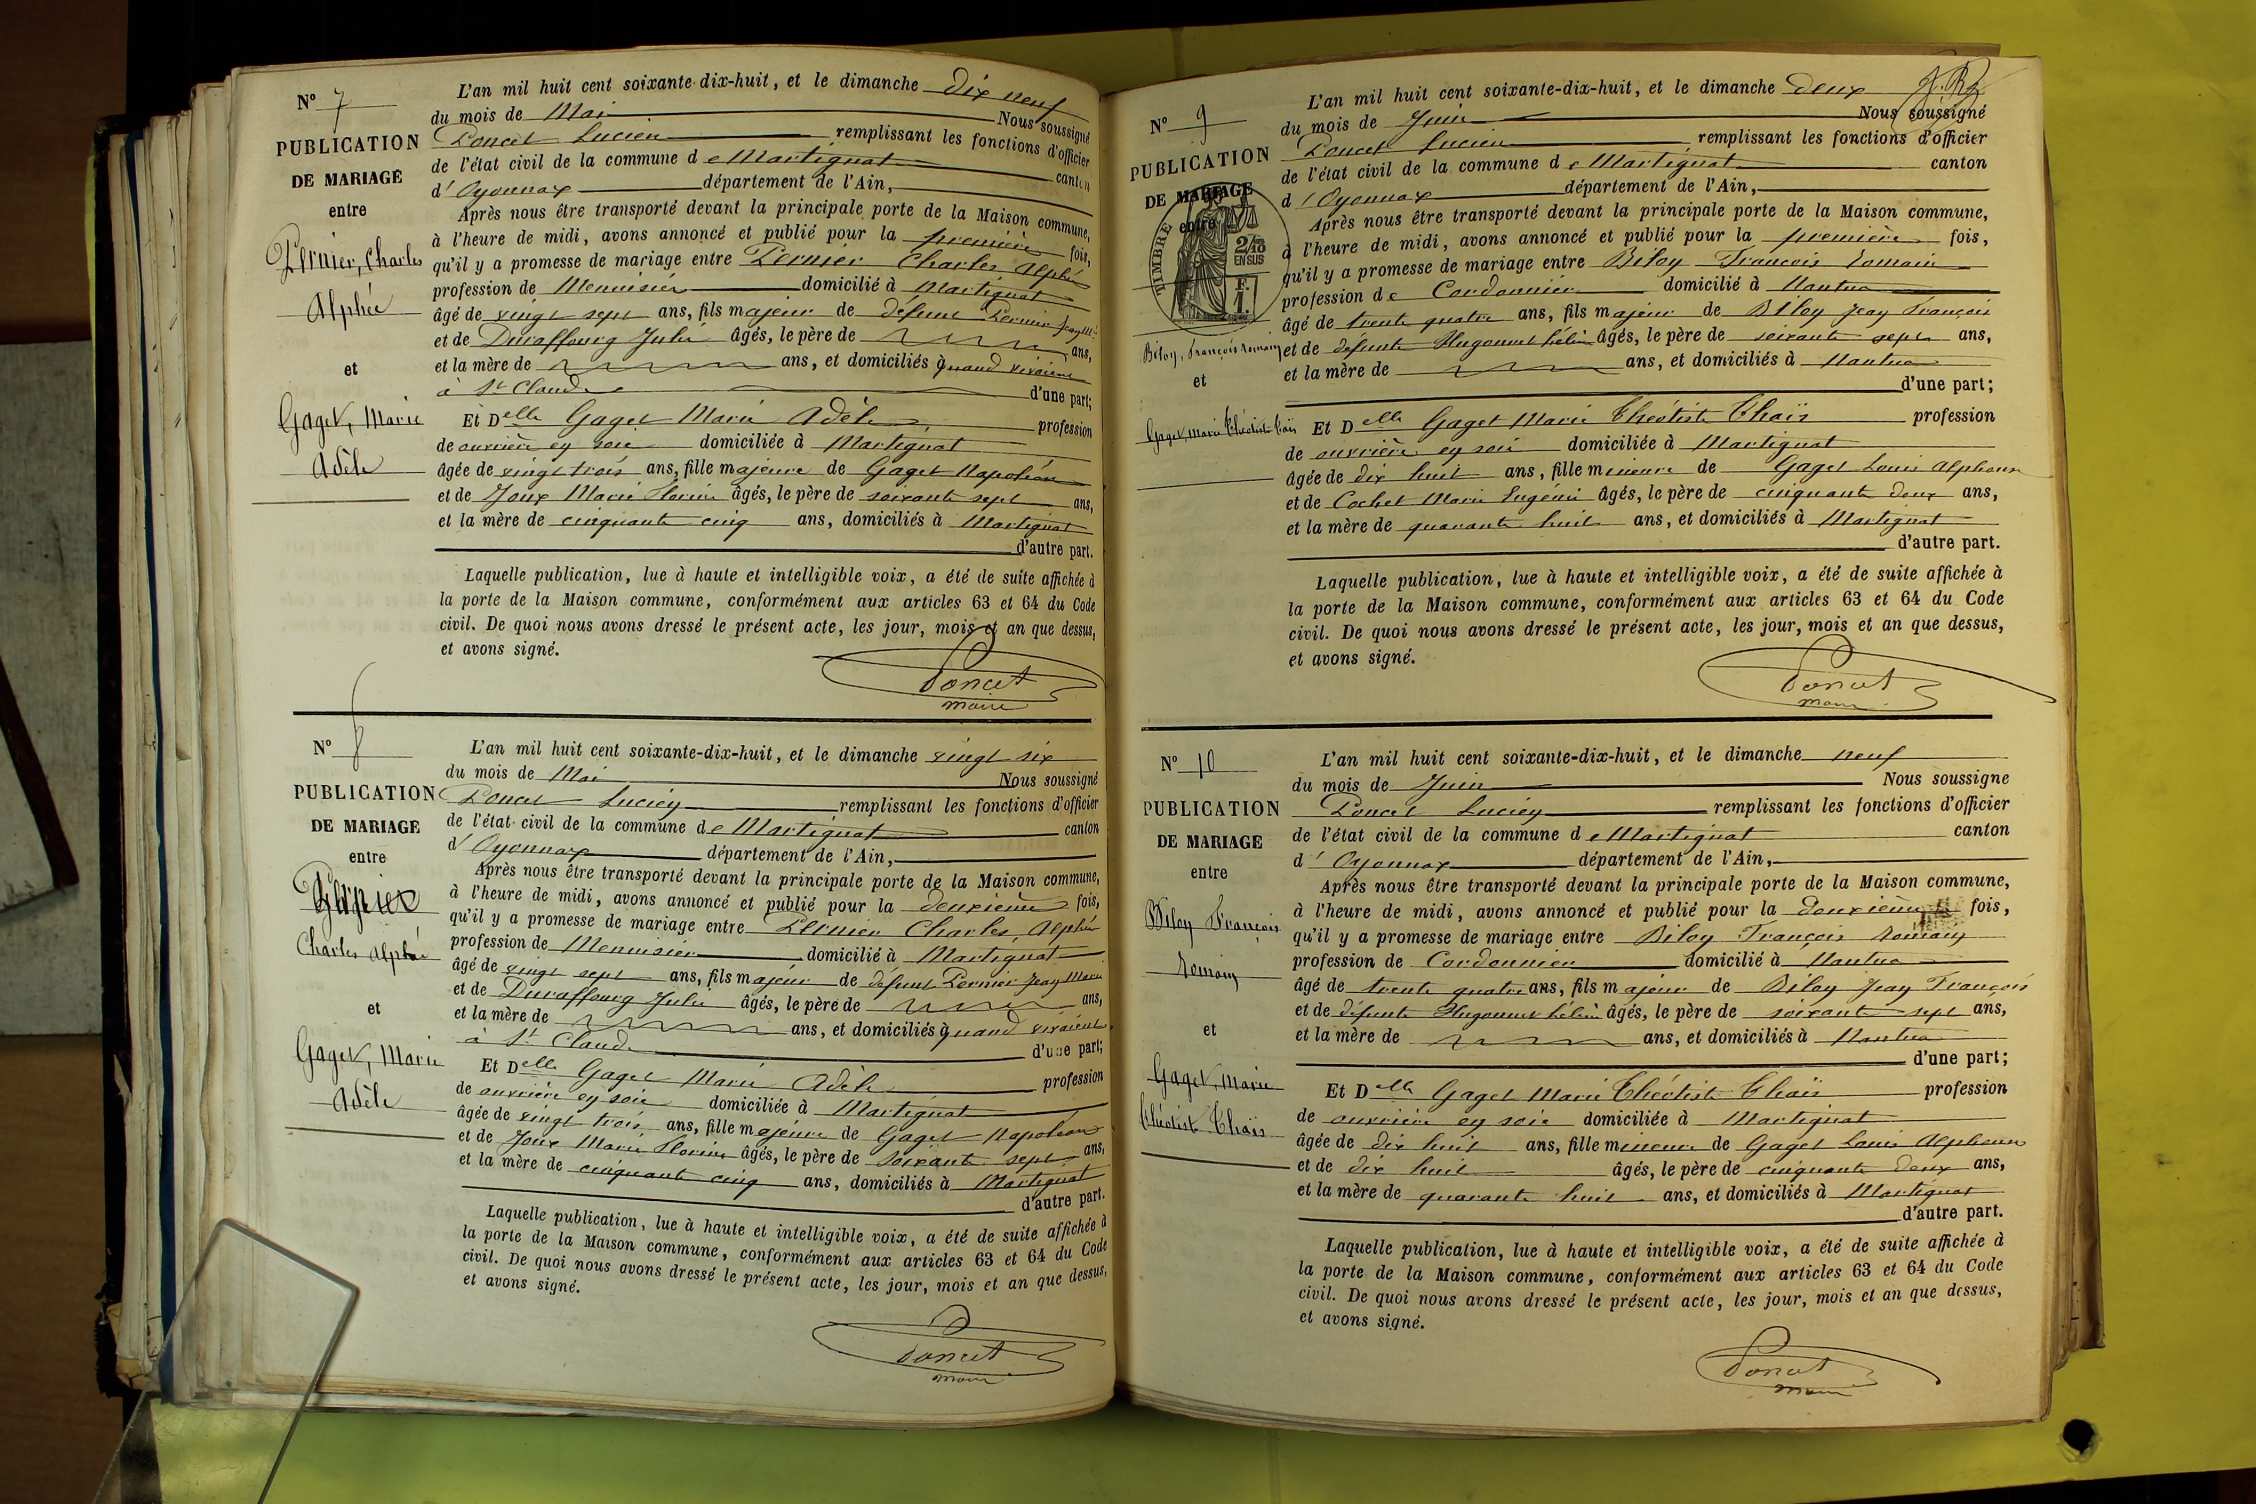 N° 7
PUBLICATION
DE MARIAGE
entre
Pernier, Charles
Alphée
et
Gaget, Marie
Adèle
L'an mil huit cent soixante-dix-huit, et le dimanche dix neuf
du mois de Mai Nous soussigné
Poncet Lucien remplissant les fonctions d'officier
de l'état civil de la commune de Martignat canton
d'Oyonnax département de l'Ain,
Après nous être transporté devant la principale porte de la Maison commune,
à l'heure de midi, avons annoncé et publié pour la première fois,
qu'il y a promesse de mariage entre Pernier Charles Alphée
profession de Menuisier domicilié à Martignat
âgé de vingt sept ans, fils majeur de défunt Pernier Jean M
et de Duraffourg Julie âgés, le père de ans,
et la mère de ans, et domiciliés à quand vivaient
à St Claude d'une part;
Et Delle Gaget Marie Adèle profession
de ouvrière en soie domiciliée à Martignat
âgée de vingt trois ans, fille majeure de Gaget Napoléon
et de Joux Marie Florine âgés, le père de soixante sept ans,
et la mère de cinquante cinq ans, domiciliés à Martignat
d'autre part.
Laquelle publication, lue à haute et intelligible voix, a été de suite affichée à
la porte de la Maison commune, conformément aux articles 63 et 64 du Code
civil. De quoi nous avons dressé le présent acte, les jour, mois et an que dessus,
et avons signé.
Poncet
maire
N° 8
PUBLICATION
DE MARIAGE
entre
Pernier
Charles Alphée
et
Gaget, Marie
Adèle
L'an mil huit cent soixante-dix-huit, et le dimanche vingt six
du mois de Mai Nous soussigné
Poncet Lucien remplissant les fonctions d'officier
de l'état civil de la commune de Martignat canton
d'Oyonnax département de l'Ain,
Après nous être transporté devant la principale porte de la Maison commune,
à l'heure de midi, avons annoncé et publié pour la deuxième fois,
qu'il y a promesse de mariage entre Pernier Charles Alphée
profession de Menuisier domicilié à Martignat
âgé de vingt sept ans, fils majeur de défunt Pernier Jean Marie
et de Duraffourg Julie âgés, le père de ans,
et la mère de ans, et domiciliés à quand vivaient
à St Claude d'une part;
Et Delle Gaget Marie Adèle profession
de ouvrière en soie domiciliée à Martignat
âgée de vingt trois ans, fille majeure de Gaget Napoléon
et de Joux Marie Florine âgés, le père de soixante sept ans,
et la mère de cinquante cinq ans, domiciliés à Martignat
d'autre part.
Laquelle publication, lue à haute et intelligible voix, a été de suite affichée à
la porte de la Maison commune, conformément aux articles 63 et 64 du Code
civil. De quoi nous avons dressé le présent acte, les jour, mois et an que dessus,
et avons signé.
Poncet
maire
N° 9
PUBLICATION
DE MARIAGE
entre
TIMBRE
2/10
EN SUS
F.
1.
Biloy, François Romain
et
Gaget, Marie Théotiste Thaïs
L'an mil huit cent soixante-dix-huit, et le dimanche deux
du mois de Juin Nous soussigné
Poncet Lucien remplissant les fonctions d'officier
de l'état civil de la commune de Martignat canton
d'Oyonnax département de l'Ain,
Après nous être transporté devant la principale porte de la Maison commune,
à l'heure de midi, avons annoncé et publié pour la première fois,
qu'il y a promesse de mariage entre Biloy François Romain
profession de Cordonnier domicilié à Nantua
âgé de trente quatre ans, fils majeur de Biloy Jean François
et de défunte Hugonnet Célin âgés, le père de soixante sept ans,
et la mère de ans, et domiciliés à Nantua
d'une part;
Et Delle Gaget Marie Théotiste Thaïs profession
de ouvrière en soie domiciliée à Martignat
âgée de dix huit ans, fille mineure de Gaget Louis Alphonse
et de Cochet Marie Eugénie âgés, le père de cinquante deux ans,
et la mère de quarante huit ans, et domiciliés à Martignat
d'autre part.
Laquelle publication, lue à haute et intelligible voix, a été de suite affichée à
la porte de la Maison commune, conformément aux articles 63 et 64 du Code
civil. De quoi nous avons dressé le présent acte, les jour, mois et an que dessus,
et avons signé.
Poncet
maire
N° 10
PUBLICATION
DE MARIAGE
entre
Biloy François
Romain
et
Gaget, Marie
Théotiste Thaïs
L'an mil huit cent soixante-dix-huit, et le dimanche neuf
du mois de Juin Nous soussigné
Poncet Lucien remplissant les fonctions d'officier
de l'état civil de la commune de Martignat canton
d'Oyonnax département de l'Ain,
Après nous être transporté devant la principale porte de la Maison commune,
à l'heure de midi, avons annoncé et publié pour la deuxième fois,
qu'il y a promesse de mariage entre Biloy François Romain
profession de Cordonnier domicilié à Nantua
âgé de trente quatre ans, fils majeur de Biloy Jean François
et de défunte Hugonnet Célin âgés, le père de soixante sept ans,
et la mère de ans, et domiciliés à Nantua
d'une part;
Et Delle Gaget Marie Théotiste Thaïs profession
de ouvrière en soie domiciliée à Martignat
âgée de dix huit ans, fille mineure de Gaget Louis Alphonse
et de dix huit âgés, le père de cinquante deux ans,
et la mère de quarante huit ans, et domiciliés à Martignat
d'autre part.
Laquelle publication, lue à haute et intelligible voix, a été de suite affichée à
la porte de la Maison commune, conformément aux articles 63 et 64 du Code
civil. De quoi nous avons dressé le présent acte, les jour, mois et an que dessus,
et avons signé.
Poncet
maire